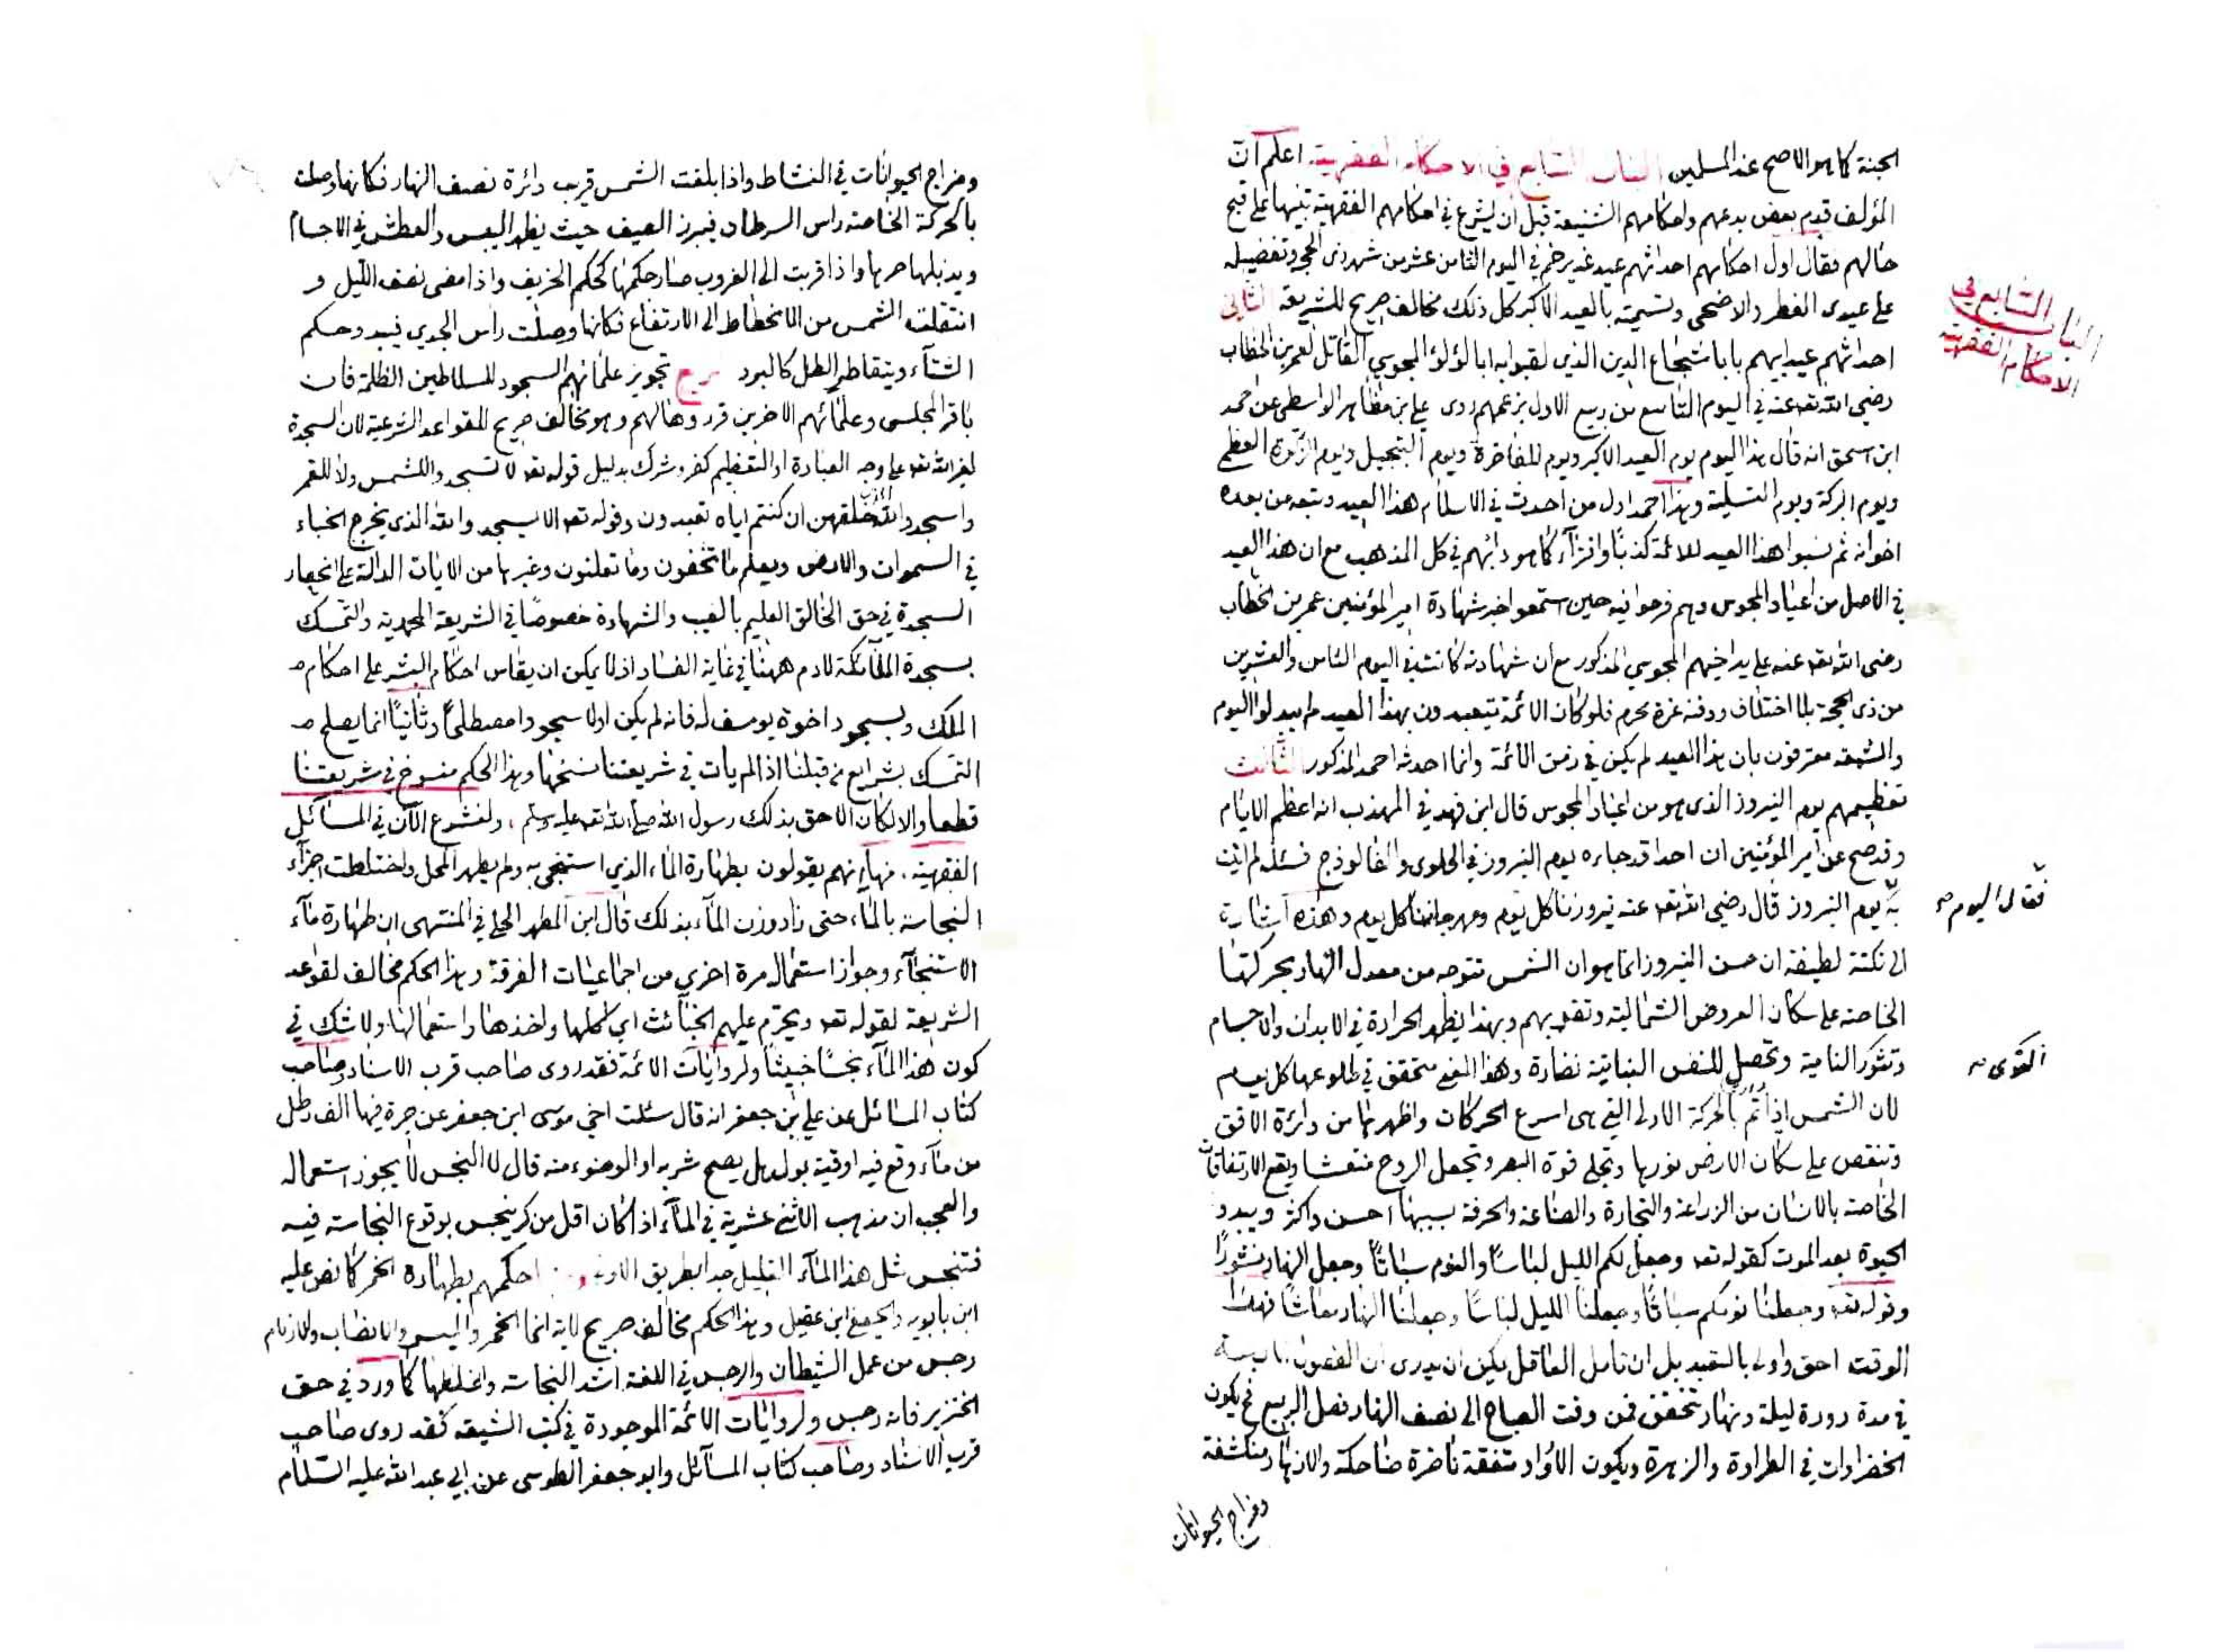 الجنة كما هو الاصح عند المسلمين الباب السابع في الاحكام الفقهية اعلم ان
المؤلف قدم بعض بدعهم واحكامهم الشنيعة قبل ان يشرع في احكامهم الفقهية تنبيها على قبح
حالهم فقال اول احكامهم احداثهم عيد غدير خم في اليوم الثامن عشر من شهر ذى الحجة وتفضيله
على عيدى الفطر والاضحى وتسميته بالعيد الاكبر كل ذلك مخالف صريح للشريعة الثاني
احداثهم عيد ابيهم بابا شجاع الدين الذي لقبوا به ابا لؤلؤ المجوسي القاتل لعمر بن الخطاب
رضي الله تعه عنه في اليوم التاسع من ربيع الاول بزعمهم روى علي بن مظاهر الواسطي عن احمد
ابن اسحق انه قال هذا اليوم يوم العيد الاكبر ويوم المفاخرة ويوم التبجيل ويوم الزكوة العظمى
ويوم البركة ويوم التسلية وهذا احمد اول من احدث في الاسلام هذا العيد وتبعه من بعده
اخوانه ثم نسبوا هذا العيد للائمة كذبًا وافتراء كما هو دابهم في كل المذهب مع ان هذا العيد
في الاصل من اعياد المجوس وهم فرحوا فيه حين استمعوا خبر شهادة امير المؤمنين عمر بن الخطاب
رضى الله تعه عنه على يد اخيهم المجوسي المذكور مع ان شهادته كانت في اليوم الثامن والعشرين
من ذى الحجة بلا اختلاف ودفنه غرة محرم فلو كان الائمة يتعيدون بهذا العيد لم يبدلوا اليوم
والشيعة معترفون بان هذا العيد لم يكن في زمن الائمة وانما احدثه احمد المذكور الثالث
تعظيمهم يوم النيروز الذى هو من اعياد المجوس قال ابن فهد في المهذب انه اعظم الايام
وقد صح عن امير المؤمنين ان احدا قد جاءه يوم النيروز في الحلوى والفالوذج فسئل لم اتيت
به يوم النيروز قال رضي الله تعه عنه نيروزنا كل يوم ومهرجاننا كل يوم وهذه اشارة
الى نكتة لطيفة ان حسن النيروز انما هو ان الشمس تتوجه من معدل النهار بحركتها
الخاصة على سكان العروض الشمالية وتقربهم وبهذا يظهر الحرارة في الابدان والاجسام
وتثور النامية وتحصل للنفس النباتية نضارة وهذا المعنى متحقق في طلوعها كل يوم
لان الشمس اذا تتم بالحركة الاولى التي هى اسرع الحركات واظهرها من دائرة الافق
وتنقص على سكان الارض نورها وتجلى قوة البصر وتجعل الروح منتعشا ويقع الارتفاقات
الخاصة بالانسان من الزراعة والتجارة والصناعة والحرفة بسببها احسن واكثر ويبدو
الحيوة بعد الموت كقوله تعه وجعل لكم الليل لباسًا والنوم سباتًا وجعل النهار نشورًا
وقوله تعه وجعلنا نومكم سباتًا وجعلنا الليل لباسًا وجعلنا النهار معاشًا فهذا
الوقت احق واولى بالتعيد بل ان تامل العاقل يمكن ان يدرى ان الفصول
في مدة دورة ليلة ونهار تتحقق فمن وقت الصباح الى نصف النهار فصل الربيع فيكون
الخضراوات في الطراوة والزهرة ويكون الاوراد متفقة ناضرة ضاحكة والازهار منكشفة
ومزاج الحيوانات
الباب السابع في
الاحكام الفقهية
فقال اليوم صح
القوى صح
ومزاج الحيوانات في النشاط واذا بلغت الشمس قريب دائرة نصف النهار فكانها وصلت
بالحركة الخاصة راس السرطان فيبرز الصيف حيث يظهر اليبس والعطش في الاجسام
ويذبلها حرها واذا قربت الى الغروب صار حكمها كحكم الخريف واذا مضى نصف الليل و
انتقلت الشمس من الانحطاط الى الارتفاع فكانها وصلت راس الجدي فيبدو حكم
الشتآء ويتقاطر الطل كالبرد تجويز علمائهم السجود للسلاطين الظلمة فان
باقر المجلسى وعلمائهم الاخرين قرروها لهم وهو مخالف صريح للقواعد الشرعية لان السجدة
لغير الله تعه على وجه العبادة او التعظيم كفر وشرك بدليل قوله تعه لا تسجدوا للشمس ولا للقمر
واسجدوا لله الذى خلقهن ان كنتم اياه تعبدون وقوله تعه الا يسجدوا لله الذى يخرج الخباء
في السموات والارض ويعلم ما تخفون وما تعلنون وغيرها من الايات الدالة على انحصار
السجدة في حق الخالق العليم بالغيب والشهادة خصوصًا في الشريعة المحمدية والتمسك
بسجدة الملآئكة لادم ههنا في غاية الفساد اذ لا يمكن ان يقاس احكام البشر على احكام
الملك وبسجود اخوة يوسف له فانه لم يكن اولا سجودا مصطلحًا وثانيًا انما يصلح
التمسك بشرايع من قبلنا اذ لم يات في شريعتنا نسخها وهذا الحكم منسوخ في شريعتنا
قطعا والا لكان الاحق بذلك رسول الله صلى الله تعه عليه وسلم، ولنشرع الآن في المسآئل
الفقهية. منها انهم يقولون بطهارة الماء الذي استنجى به ولم يطهر المحل واختلطت اجزآء
النجاسة بالماء حتى زاد وزن المآء بذلك قال ابن المطهر الحلي في المنتهى ان طهارة مآء
الاستنجآء وجواز استعماله مرة اخرى من اجماعيات الفرقة وهذا الحكم مخالف لقواعد
الشريعة لقوله تعه ويحرم عليهم الخبآئث اي اكلها واخذها واستعمالها ولا شك في
كون هذا المآء نجسًا خبيثًا ولروايات الائمة فقد روى صاحب قرب الاسناد وصاحب
كتاب المسائل عن علي بن جعفر انه قال سئلت اخي موسى ابن جعفر عن جرة فيها الف رطل
من مآء وقع فيه اوقية بول هل يصح شربه او الوضوء منه قال لا النجس لا يجوز استعماله
والعجب ان مذهب الاثني عشرية في المآء اذا كان اقل من كر ينجس بوقوع النجاسة فيه
فتنجس مثل هذا المآء القليل جدا بطريق الاولى حكمهم بطهارة الخمر كما نص عليه
ابن بابويه والجعفى ابن عقيل وهذا الحكم مخالف صريح لاية انما الخمر والميسر والانصاب والازلام
رجس من عمل الشيطان والرجس في اللغة اشد النجاسة واغلظها كما ورد في حق
الخنزير فانه رجس ولروايات الائمة الموجودة في كتب الشيعة فقد روى صاحب
قرب الاسناد وصاحب كتاب المسآئل وابو جعفر الطوسى عن ابي عبد الله عليه السلام